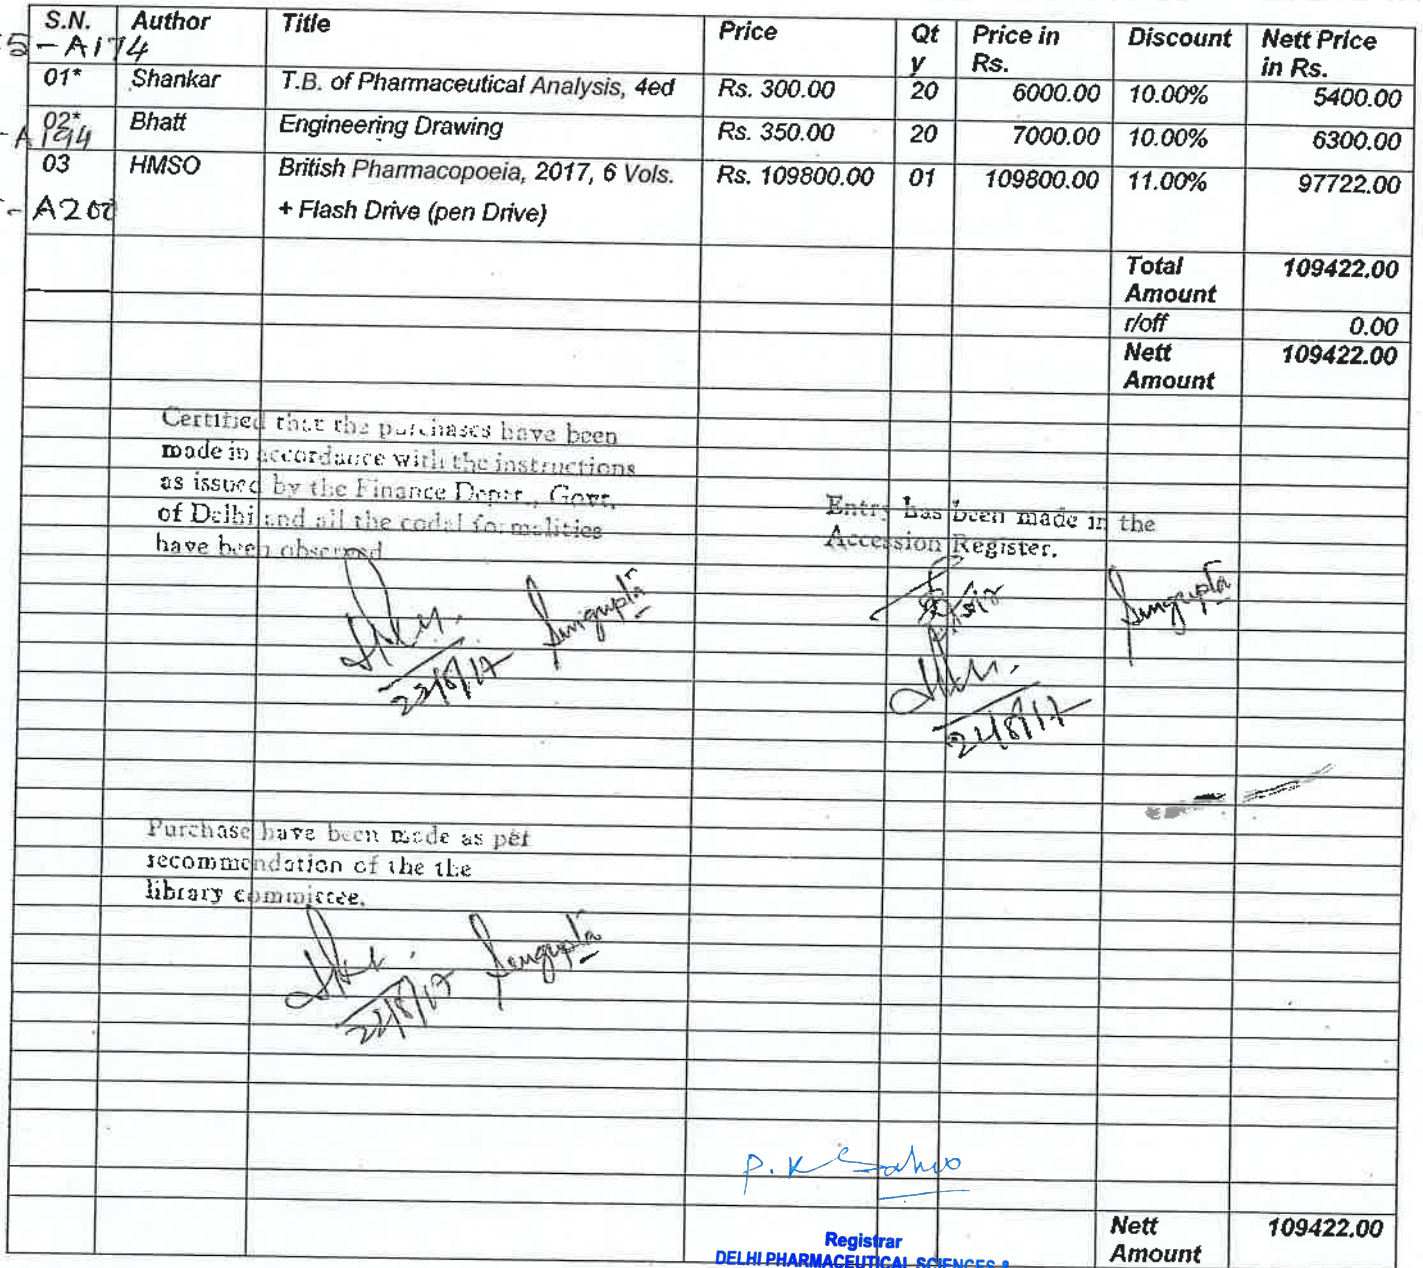 S.N. Author Title Price Qty Price in Rs. Discount Nett Price in Rs.
-A174
01* Shankar T.B. of Pharmaceutical Analysis, 4ed Rs. 300.00 20 6000.00 10.00% 5400.00
02* Bhatt Engineering Drawing Rs. 350.00 20 7000.00 10.00% 6300.00
-A194
03 HMSO British Pharmacopoeia, 2017, 6 Vols. Rs. 109800.00 01 109800.00 11.00% 97722.00
- A200 + Flash Drive (pen Drive)
Total Amount 109422.00
r/off 0.00
Nett Amount 109422.00
Certified that the purchases have been
made in accordance with the instructions
as issued by the Finance Deptt., Govt.
of Delhi and all the codal formalities
have been observed
Entry has been made in the
Accession Register.
Sengupta
Sengupta
22/8/17
21/8/17
Purchase have been made as per
recommendation of the the
library committee.
Sengupta
22/8/17
P. K Sahoo
Nett Amount 109422.00
Registrar
DELHI PHARMACEUTICAL SCIENCES &